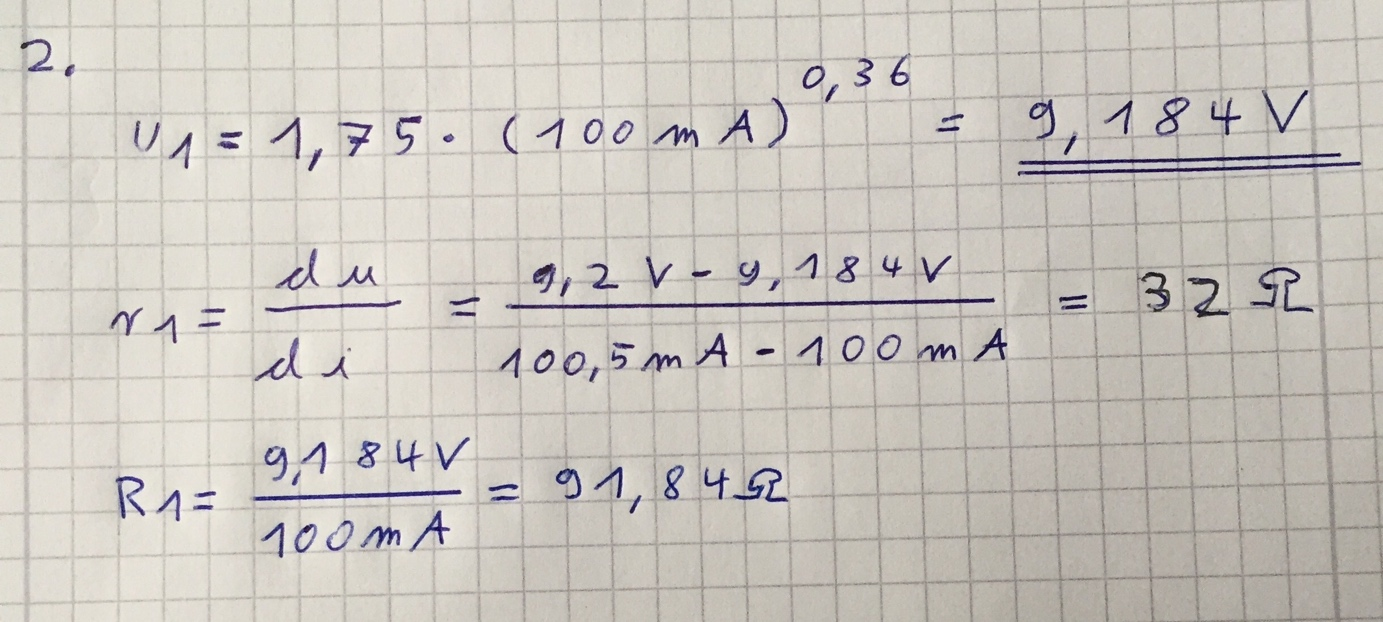 2.
U1 = 1,75 · (100 mA)^0,36 = 9,184 V
r1 = du/di = (9,2 V - 9,184 V)/(100,5 mA - 100 mA) = 32 Ω
R1 = 9,184 V/100 mA = 91,84 Ω